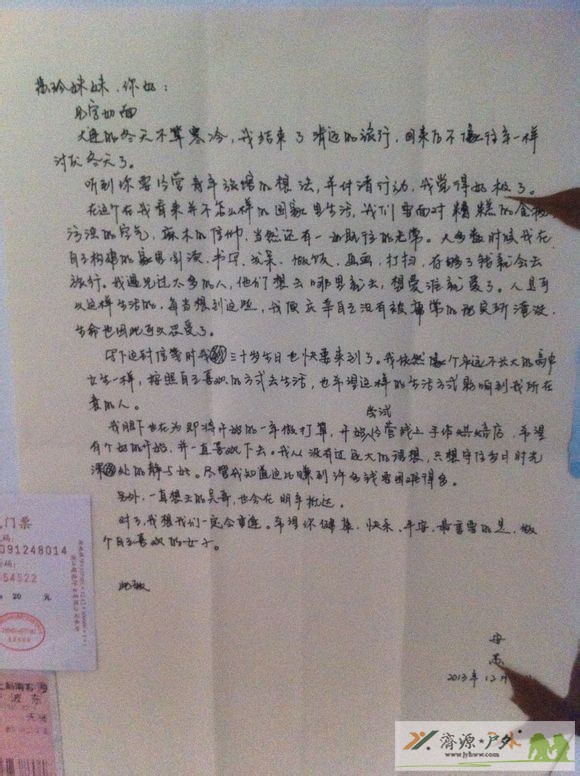 妹妹，你好：
见字如面
大连的冬天不算寒冷，我结束了 的旅行，回来后不像往年一样
讨厌冬天了。
听到你要经营青年旅馆的想法，并付诸行动，我觉得好极了。
在这个在我看来并不怎么样的国家里生活，我们要面对糟糕的食物
污浊的空气，麻木的信仰，当然还有一如既往的无常。大多数时候我在
自己构建的 里 读，书写，发呆，做饭，画画，打扫，存够了钱就会去
旅行。我遇见过太多的人，他们想去哪里就去，想爱谁就爱了。人是可
以这样生活的，每当想到这些，我庆幸自己没有被 常的现实所淹没，
生命也因此可以忍受了。
写下这封信等时我 三十岁生日也快要来到了。我依然像个永远不长大的高中
女生一样，按照自己喜欢的方式去生活，也希望这样的生活方式影响到我所在
意的人。
尝试
我眼下也在为即将开始的一年做打算，开始经营线上手作烘焙店，希望
有个好的开始，并一直喜欢下去。我从没有过远大的理想，只想守住当日时光
深处的静与好。尽管我知道这比赚到许多钱要困难得多。
另外，一直想去的吴哥，也会在明年抵达。
对了，我想我们一定会重逢。希望你健康，快乐，平安，最重要的是，做
个自己喜欢的女子。
此致
2013年12月
门票
091248014
54522
20 元
波东
濟源★户外
www.jyhww.com